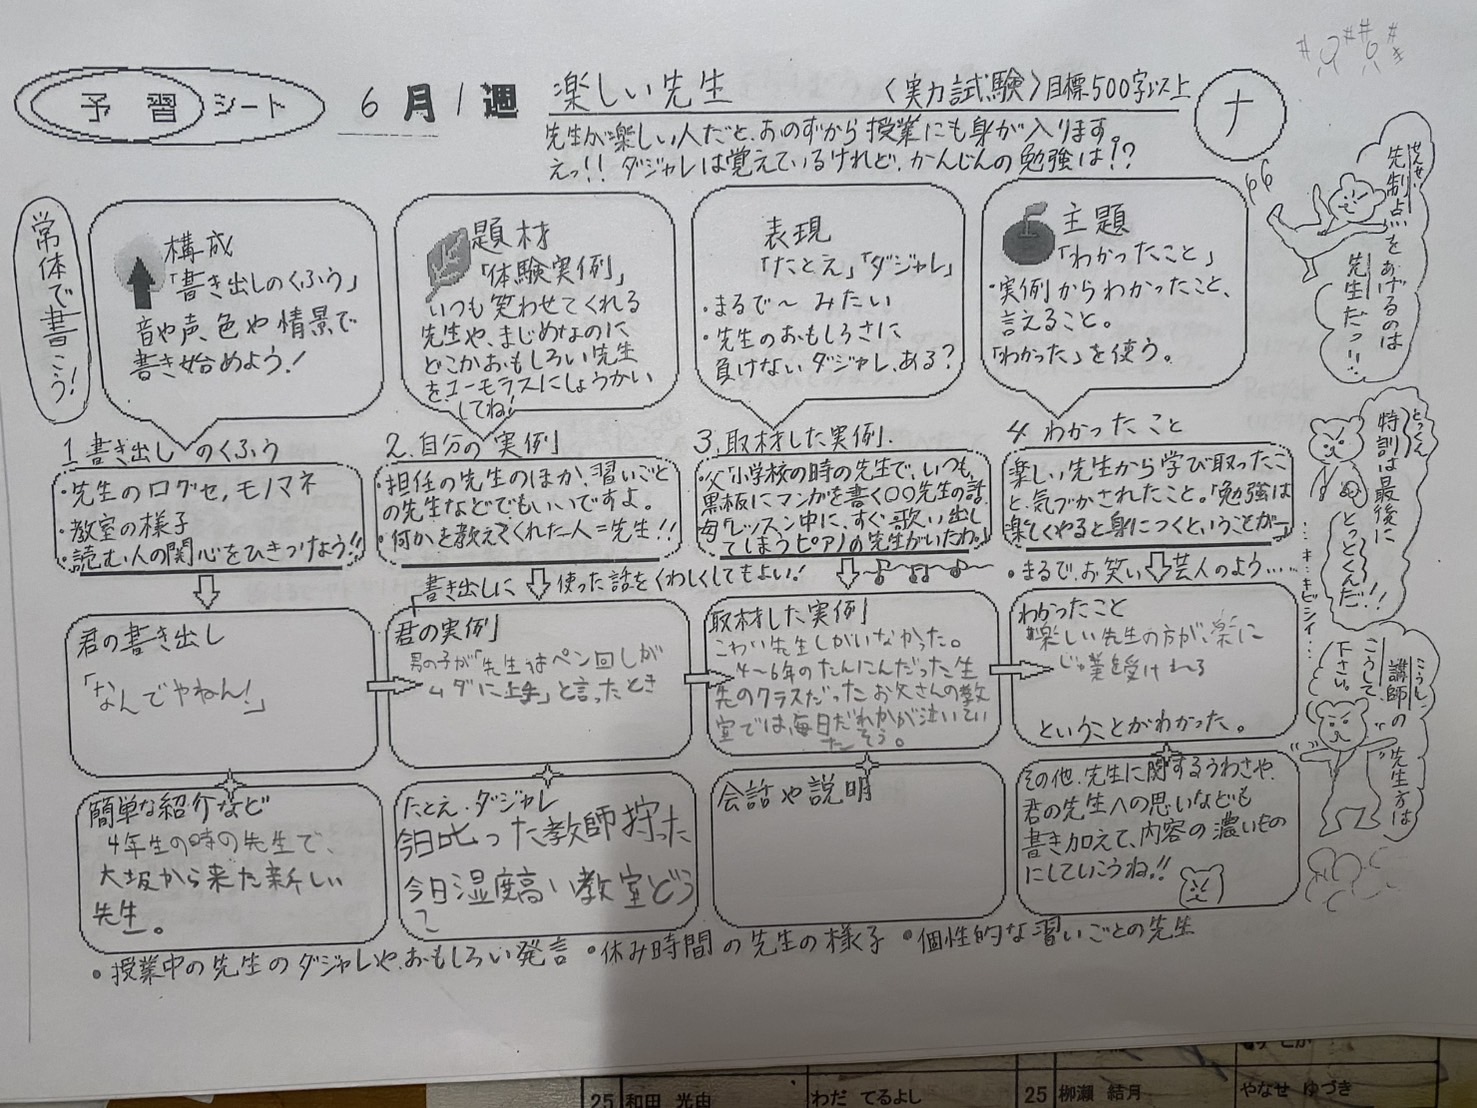 予習シート
6月1週
楽しい先生
〈実力試験〉目標500字以上
ナ
先生が楽しい人だと、おのずから授業にも身が入ります。
えっ!! ダジャレは覚えているけれど、かんじんの勉強は!?
常体で書こう!
構成
「書き出しのくふう」
音や声、色や情景で
書き始めよう!
題材
「体験実例」
いつも笑わせてくれる
先生や、まじめなのに
どこかおもしろい先生
をユーモラスにしょうかい
してね!
表現
「たとえ」「ダジャレ」
・まるで〜みたい
・先生のおもしろさに
負けないダジャレ、ある?
主題
「わかったこと」
・実例からわかったこと、
言えること。
「わかった」を使う。
せんせい
先制点をあげるのは
先生だっ!!
1 書き出しのくふう
・先生の口グセ,モノマネ
・教室の様子
・読む人の関心をひきつけよう!!
2.自分の実例
・担任の先生のほか、習いごと
の先生などでもいいですよ。
・何かを教えてくれた人=先生!!
3,取材した実例.
父「小学校の時の先生で、いつも、
黒板にマンガを書く〇〇先生の話
母「レッスン中に、すぐ歌い出し
てしまうピアノの先生がいたわ。
4.わかったこと
楽しい先生から学び取ったこ
と、気づかされたこと。「勉強は
楽しくやると身につくということが〜
・まるで、お笑い芸人のよう……
書き出しに使った話をくわしくしてもよい!
とっくん
特訓は最後に
とっとくんだ!!
…キ…キビシイ…
君の書き出し
「なんでやねん!」
君の実例
男の子が「先生はペン回しが
ムダに上手」と言ったとき
取材した実例
こわい先生しかいなかった。
4〜6年のたんにんだった先
生のクラスだったお父さんの教
室では毎日だれかが泣いてい
たそう。
わかったこと
楽しい先生の方が、楽に
じゅ業を受けれる
ということがわかった。
こうし
講師の先生方は
こうして
下さい。
簡単な紹介など
4年生の時の先生で、
大坂から来た新しい
先生。
たとえ.ダジャレ
今日湿度高い教室どう
会話や説明
その他、先生に関するうわさや、
君の先生への思いなども
書き加えて、内容の濃いもの
にしていこうね!!
・授業中の先生のダジャレや、おもしろい発言 ・休み時間の先生の様子 ・個性的な習いごとの先生
25 和田 光由 わだ てるよし 25 柳瀬 結月 やなせ ゆづき